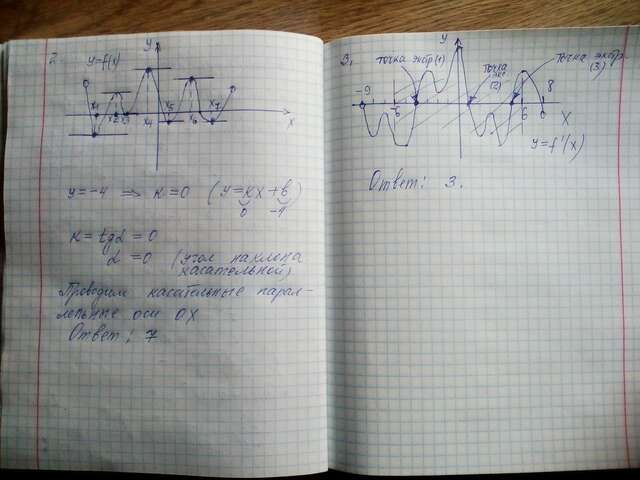 2.
y=f(x)
y
x₁ x₂ x₃ x₄ x₅ x₆ x₇
x
y=-4 ⇒ k=0 (y=kx+b)
0 -4
k=tgα=0
α=0 (угол наклона
касательной)
Проводим касательные парал-
лельные оси OX
Ответ: 7
3.
y
точка экстр(1)
точка
экс
(2)
точка экстр.
(3)
-9
-6
6
8
x
y=f'(x)
Ответ: 3.